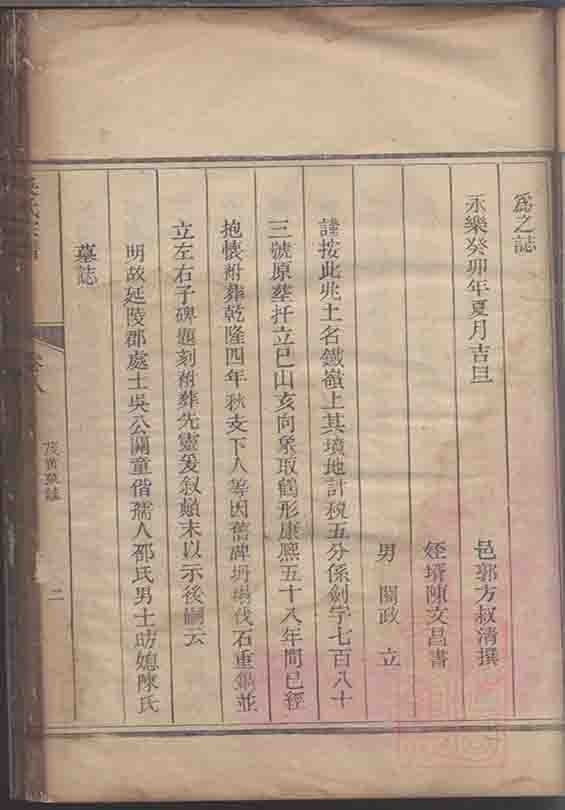 為之誌
永樂癸卯年夏月吉旦
邑郭方叔清撰
姪壻陳文昌書
男 關政 立
謹按此兆土名鐵嶺上其墳地計稅五分係劍字七百八十
三號原塟扦立巳山亥向象取鶴形康熙五十八年間已經
抱懷祔葬乾隆四年秋支下人等因舊碑坍塌伐石重鐫並
立左右子碑題刻祔葬先靈爰敘顛末以示後嗣云
明故延陵郡處士吳公關童偕孺人邵氏男士昉媳陳氏
墓誌
卷八
二